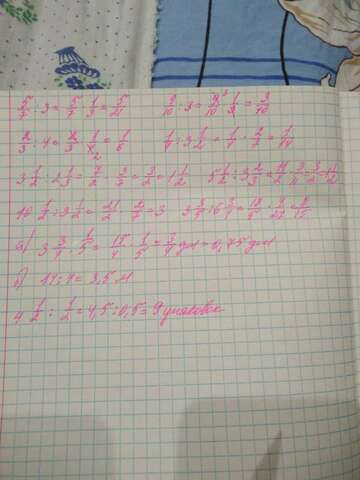 5/7 : 3 = 5/7 · 1/3 = 5/21    9/10 : 3 = 9/10 · 1/3 = 3/10
2/3 : 4 = 2/3 · 1/4 = 1/6    1/4 : 3 1/2 = 1/4 · 2/7 = 1/14
3 1/2 : 2 1/3 = 7/2 · 3/7 = 3/2 = 1 1/2    5 1/2 : 3 2/3 = 11/2 · 3/11 = 3/2 = 1 1/2
10 1/2 : 3 1/2 = 21/2 · 2/7 = 3
а) 3 3/4 · 1/5 = 15/4 · 1/5 = 3/4 дм = 0,75 дм
б) 14 : 4 = 3,5 м
4 1/2 : 1/2 = 4,5 : 0,5 = 9 упаковок